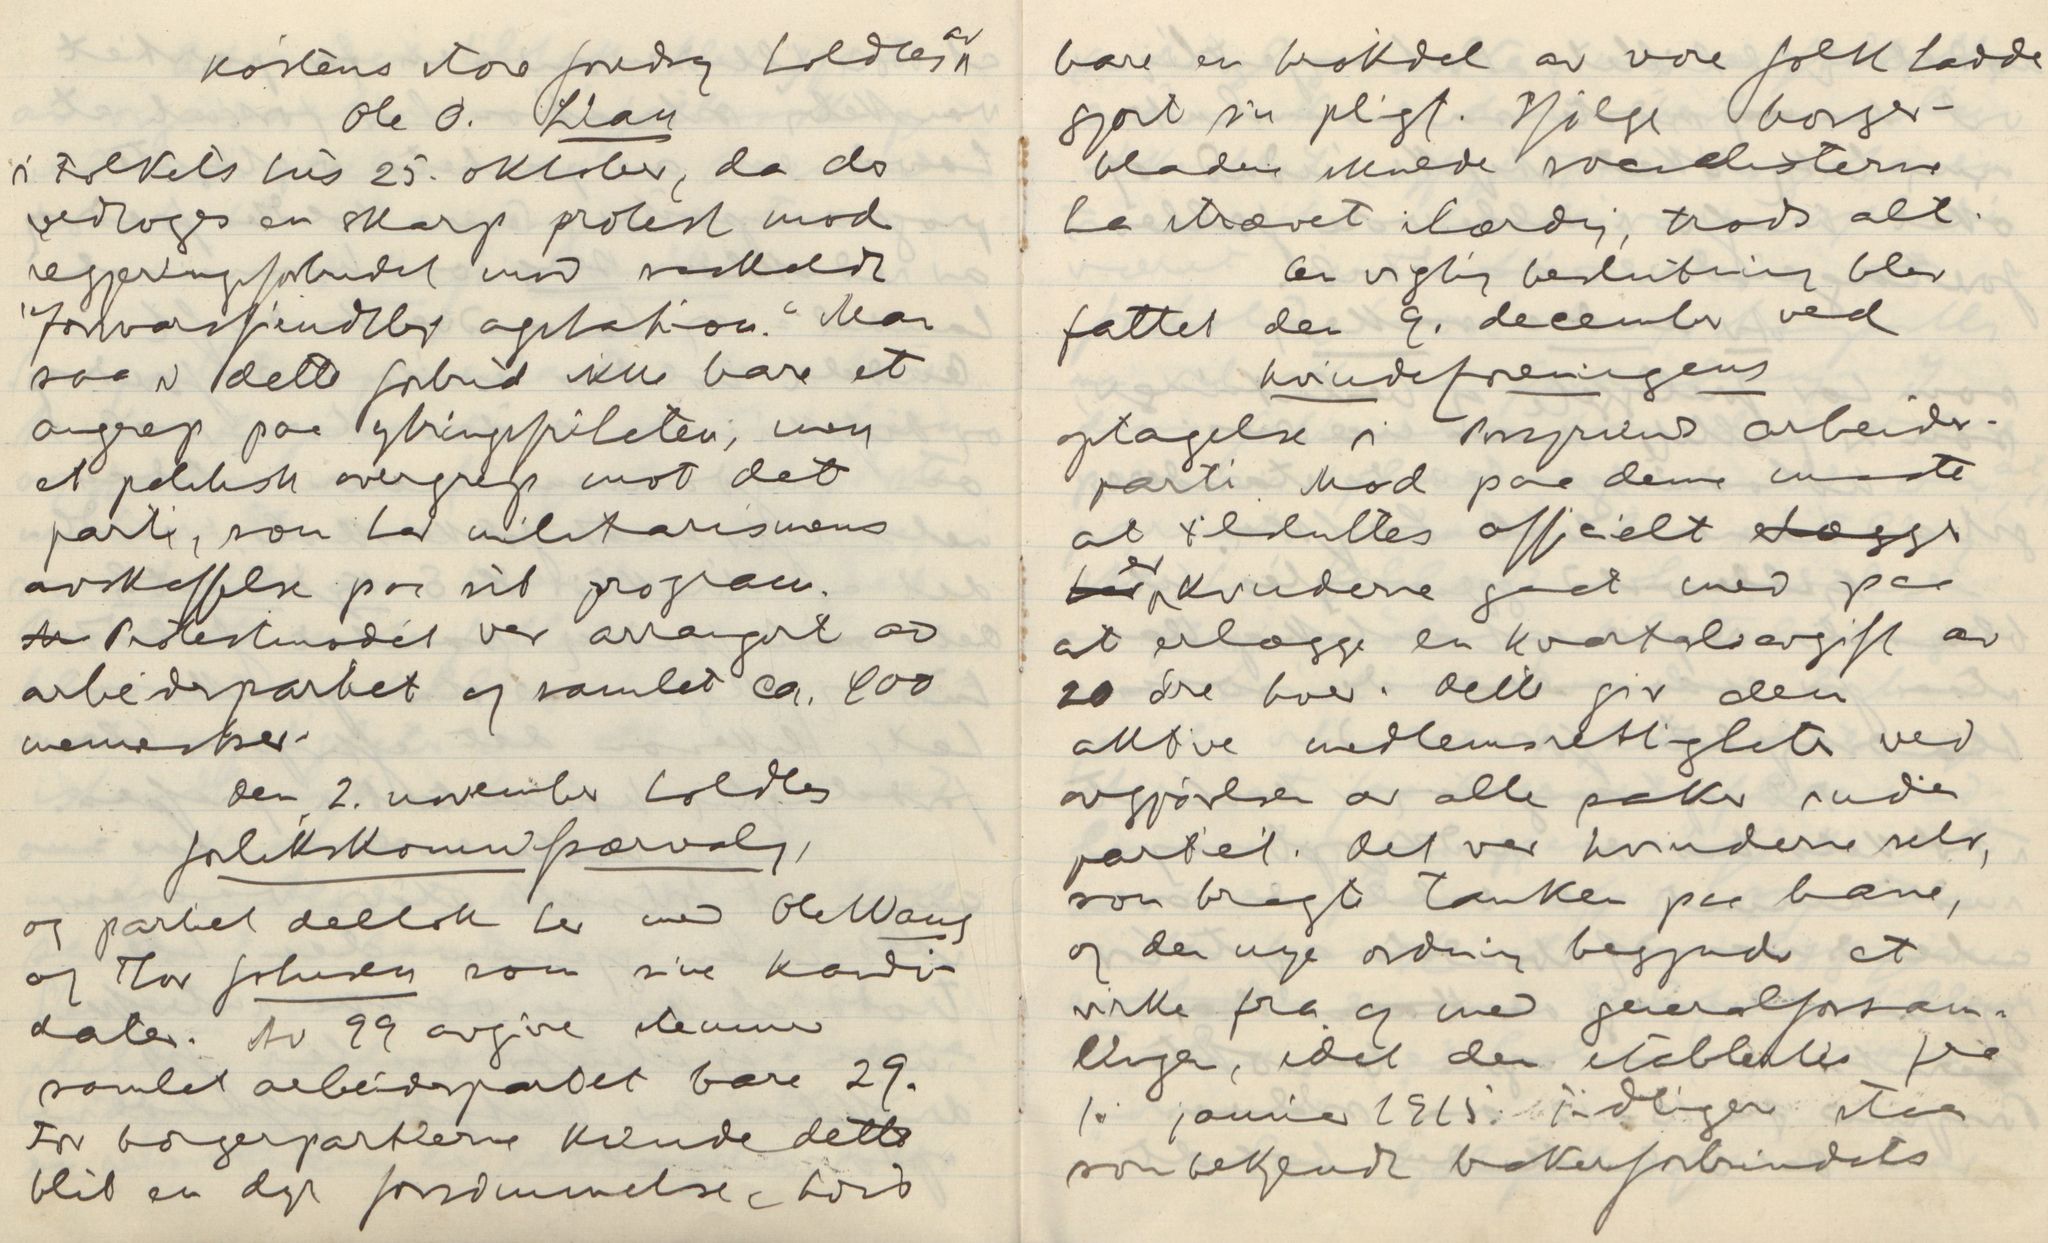 Høstens store foredrag holdtes av
Ole O. Lian
i Folkets hus 25. oktober, da der
vedtoges en skarp protest mod
regjeringsforbudet mod saakaldt
"forsvarsfiendtlig agitation." Man
saa i dette forbud ikke bare et
angrep paa ytringsfriheten, men
et politisk overgrep mot det
parti, som har militarismens
avskaffelse paa sit program.
Protestmødet var arrangert av
arbeiderpartiet og samlet ca. 400
mennesker.
Den 2. november holdtes
forlikskommissærvalg,
og partiet deltok her med Ole Wang
og Thor Johnsen som sine kandi-
dater. Av 99 avgivne stemmer
samlet arbeiderpartiet bare 29.
For borgerpartierne kunde dette
blit en dyr forsømmelse, hvis
bare en brøkdel av vore folk hadde
gjort sin pligt. Ifølge borger-
bladene skulde socialisterne
ha strævet ihærdig, trods alt.
En vigtig beslutning blev
fattet den 9. december ved
kvindeforeningens
optagelse i Porsgrunds arbeider-
parti. Mod paa denne maate
at tilsluttes officielt
er kvinderne gaat med paa
at erlægge en kvartalsavgift av
20 øre hver. Dette gir dem
aktive medlemsrettigheter ved
avgjørelsen av alle saker inden
partiet. Det var kvinderne selv,
som bragte tanken paa bane,
og den nye ordning begynder at
virke fra og med generalforsam-
lingen, idet den etablertes fra
1. januar 1915. Tidligere staar
som bekjendt bakerforbundets